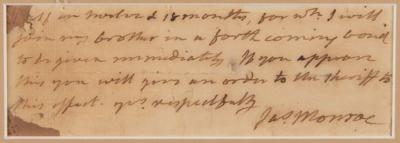 in twelve & 18 months, for wh. I will
join my brother in a forth coming bond
to be given immediately. If you approve
this you will give an order to the sheriff to
this effect. yrs. respectfully
Jas Monroe